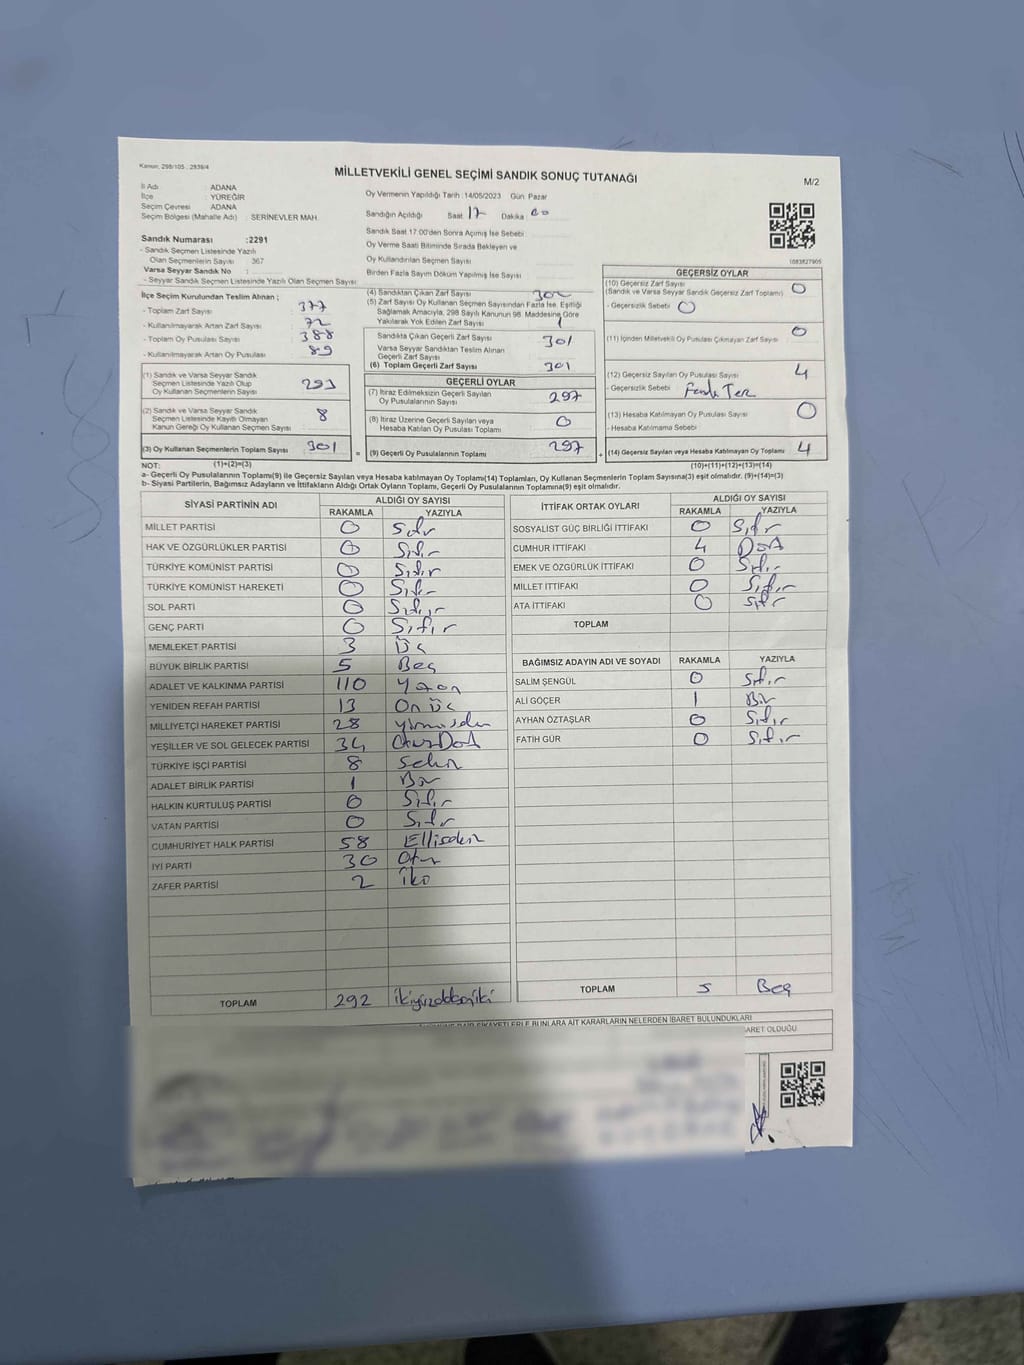 Kanun; 298/105 , 2839/4
MİLLETVEKİLİ GENEL SEÇİMİ SANDIK SONUÇ TUTANAĞI
M/2
İl Adı : ADANA
İlçe : YÜREĞİR
Seçim Çevresi : ADANA
Seçim Bölgesi (Mahalle Adı) : SERİNEVLER MAH.
Oy Vermenin Yapıldığı Tarih : 14/05/2023 Gün Pazar
Sandığın Açıldığı Saat 17 Dakika 00
Sandık Saat 17:00'den Sonra Açımış İse Sebebi
Oy Verme Saati Bitiminde Sırada Bekleyen ve
Oy Kullandırılan Seçmen Sayısı
Birden Fazla Sayım Döküm Yapılmış İse Sayısı
Sandık Numarası :2291
- Sandık Seçmen Listesinde Yazılı
Olan Seçmenlerin Sayısı 367
Varsa Seyyar Sandık No :
- Seyyar Sandık Seçmen Listesinde Yazılı Olan Seçmen Sayısı
İlçe Seçim Kurulundan Teslim Alınan ;
- Toplam Zarf Sayısı : 377
- Kullanılmayarak Artan Zarf Sayısı : 72
- Toplam Oy Pusulası Sayısı : 388
- Kullanılmayarak Artan Oy Pusulası : 89
(1) Sandık ve Varsa Seyyar Sandık
Seçmen Listesinde Yazılı Olup
Oy Kullanan Seçmenlerin Sayısı 293
(2) Sandık ve Varsa Seyyar Sandık
Seçmen Listesinde Kayıtlı Olmayan
Kanun Gereği Oy Kullanan Seçmen Sayısı 8
(3) Oy Kullanan Seçmenlerin Toplam Sayısı 301
(4) Sandıktan Çıkan Zarf Sayısı 302
(5) Zarf Sayısı Oy Kullanan Seçmen Sayısından Fazla İse, Eşitliği
Sağlamak Amacıyla, 298 Sayılı Kanunun 98. Maddesine Göre
Yakılarak Yok Edilen Zarf Sayısı 1
Sandıkta Çıkan Geçerli Zarf Sayısı 301
Varsa Seyyar Sandıktan Teslim Alınan
Geçerli Zarf Sayısı
(6) Toplam Geçerli Zarf Sayısı 301
GEÇERLİ OYLAR
(7) İtiraz Edilmeksizin Geçerli Sayılan
Oy Pusulasının Sayısı 297
(8) İtiraz Üzerine Geçerli Sayılan veya
Hesaba Katılan Oy Pusulası Toplamı 0
= (9) Geçerli Oy Pusulalarının Toplamı 297 +
1083827905
GEÇERSİZ OYLAR
(10) Geçersiz Zarf Sayısı
(Sandık ve Varsa Seyyar Sandık Geçersiz Zarf Toplamı) 0
- Geçersizlik Sebebi 0
(11) İçinden Milletvekili Oy Pusulası Çıkmayan Zarf Sayısı 0
(12) Geçersiz Sayılan Oy Pusulası Sayısı 4
- Geçersizlik Sebebi
(13) Hesaba Katılmayan Oy Pusulası Sayısı 0
- Hesaba Katılmama Sebebi
(14) Geçersiz Sayılan veya Hesaba Katılmayan Oy Toplamı 4
NOT: (1)+(2)=(3)
(10)+(11)+(12)+(13)=(14)
a- Geçerli Oy Pusulalarının Toplamı(9) ile Geçersiz Sayılan veya Hesaba katılmayan Oy Toplamı(14) Toplamları, Oy Kullanan Seçmenlerin Toplam Sayısına(3) eşit olmalıdır. (9)+(14)=(3)
b- Siyasi Partilerin, Bağımsız Adayların ve İttifakların Aldığı Ortak Oyların Toplamı, Geçerli Oy Pusulalarının Toplamına(9) eşit olmalıdır.
SİYASİ PARTİNİN ADI ALDIĞI OY SAYISI
RAKAMLA YAZIYLA
MİLLET PARTİSİ 0 Sıfır
HAK VE ÖZGÜRLÜKLER PARTİSİ 0 Sıfır
TÜRKİYE KOMÜNİST PARTİSİ 0 Sıfır
TÜRKİYE KOMÜNİST HAREKETİ 0 Sıfır
SOL PARTİ 0 Sıfır
GENÇ PARTİ 0 Sıfır
MEMLEKET PARTİSİ 3 Üç
BÜYÜK BİRLİK PARTİSİ 5 Beş
ADALET VE KALKINMA PARTİSİ 110 Yüzon
YENİDEN REFAH PARTİSİ 13 On Üç
MİLLİYETÇİ HAREKET PARTİSİ 28 Yirmisekiz
YEŞİLLER VE SOL GELECEK PARTİSİ 34 OtuzDört
TÜRKİYE İŞÇİ PARTİSİ 8 Sekiz
ADALET BİRLİK PARTİSİ 1 Bir
HALKIN KURTULUŞ PARTİSİ 0 Sıfır
VATAN PARTİSİ 0 Sıfır
CUMHURİYET HALK PARTİSİ 58 Ellisekiz
İYİ PARTİ 30 Otuz
ZAFER PARTİSİ 2 İki
TOPLAM 292 ikiyüzdoksaniki
İTTİFAK ORTAK OYLARI ALDIĞI OY SAYISI
RAKAMLA YAZIYLA
SOSYALİST GÜÇ BİRLİĞİ İTTİFAKI 0 Sıfır
CUMHUR İTTİFAKI 4 Dört
EMEK VE ÖZGÜRLÜK İTTİFAKI 0 Sıfır
MİLLET İTTİFAKI 0 Sıfır
ATA İTTİFAKI 0 Sıfır
TOPLAM
BAĞIMSIZ ADAYIN ADI VE SOYADI RAKAMLA YAZIYLA
SALİM ŞENGÜL 0 Sıfır
ALİ GÖÇER 1 Bir
AYHAN ÖZTAŞLAR 0 Sıfır
FATİH GÜR 0 Sıfır
TOPLAM 5 Beş
ŞİKAYETLERLE BUNLARA AİT KARARLARIN NELERDEN İBARET BULUNDUKLARI
OLDUĞU